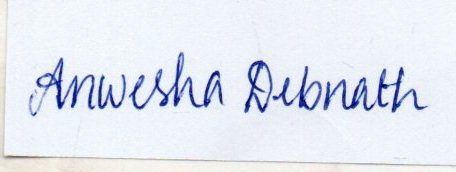 Anwesha Debnath